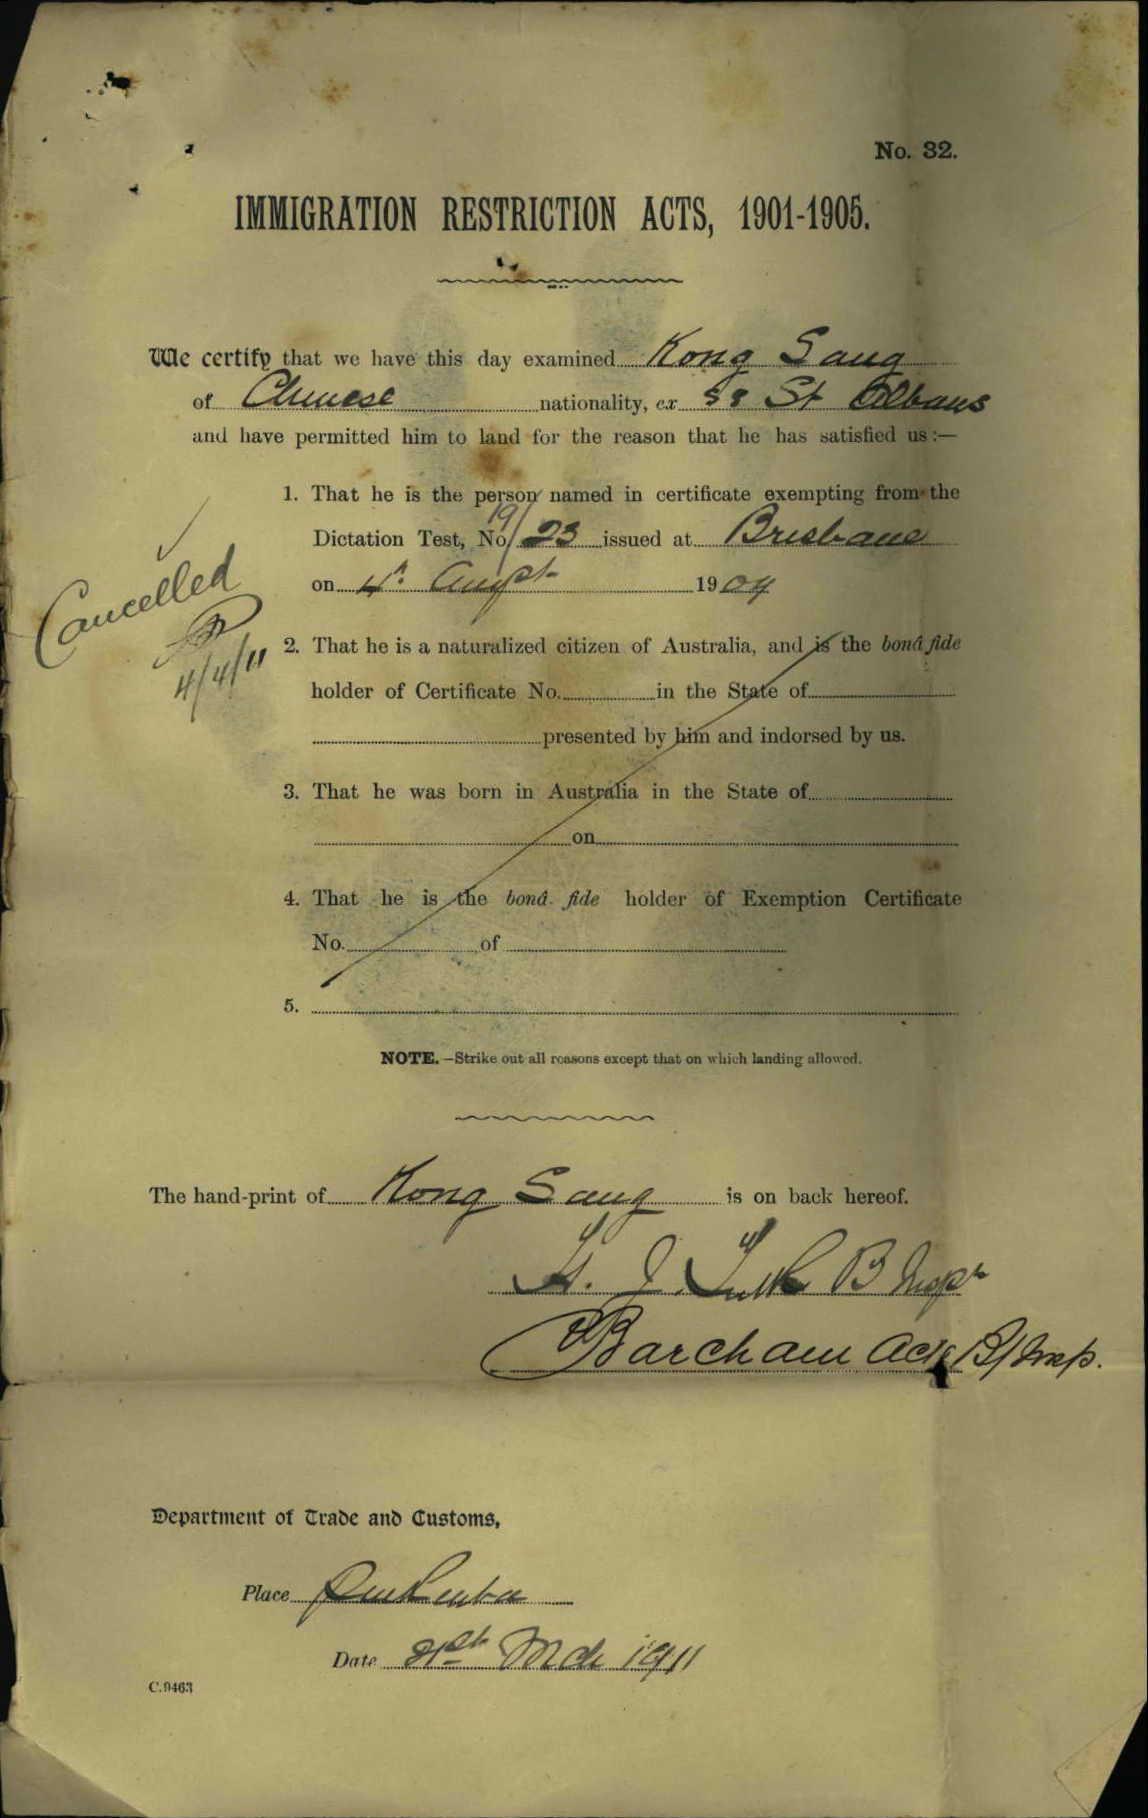 No. 32.
IMMIGRATION RESTRICTION ACTS, 1901-1905.
We certify that we have this day examined Kong Sang
of Chinese nationality, ex SS St Albans
and have permitted him to land for the reason that he has satisfied us :—
1. That he is the person named in certificate exempting from the
Dictation Test, No 19/23 issued at Brisbane
on 4th Augst 1909
Cancelled
4/4/11
2. That he is a naturalized citizen of Australia, and is the bonâ fide
holder of Certificate No. in the State of
presented by him and indorsed by us.
3. That he was born in Australia in the State of
on
4. That he is the bonâ fide holder of Exemption Certificate
No. of
5.
NOTE.—Strike out all reasons except that on which landing allowed.
The hand-print of Kong Sang is on back hereof.
J. B Inspr
Barcham Actg B/Insp.
Department of Trade and Customs,
Place Pinkenba
Date 21st Mch 1911
C.9463